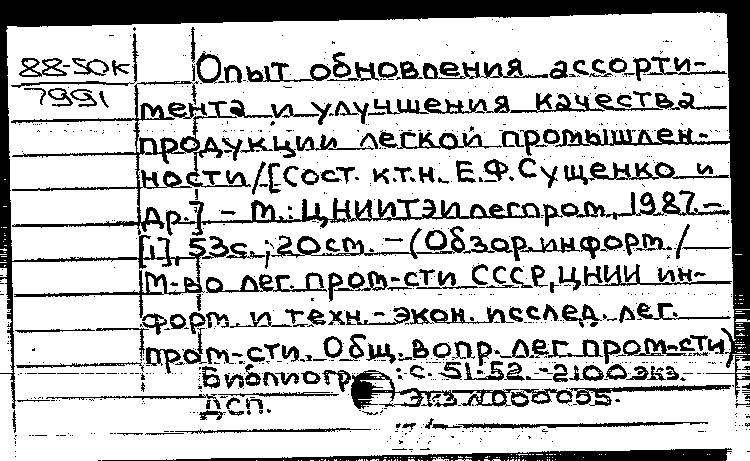 88-50к
7991
Опыт обновления ассорти-
мента и улучшения качества
продукции легкой промышлен-
ности/[Сост. к.т.н. Е.Ф.Сущенко и
др.] - М.: ЦНИИТЭИлегпром, 1987.-
[1], 53с.; 20см. - (Обзор. информ./
М-во лег. пром-сти СССР, ЦНИИ ин-
форм. и техн.-экон. исслед. лег.
пром-сти. Общ. вопр. лег. пром-сти)
Библиогр.: с. 51-52. - 2100 экз.
ДСП. Экз N000005.